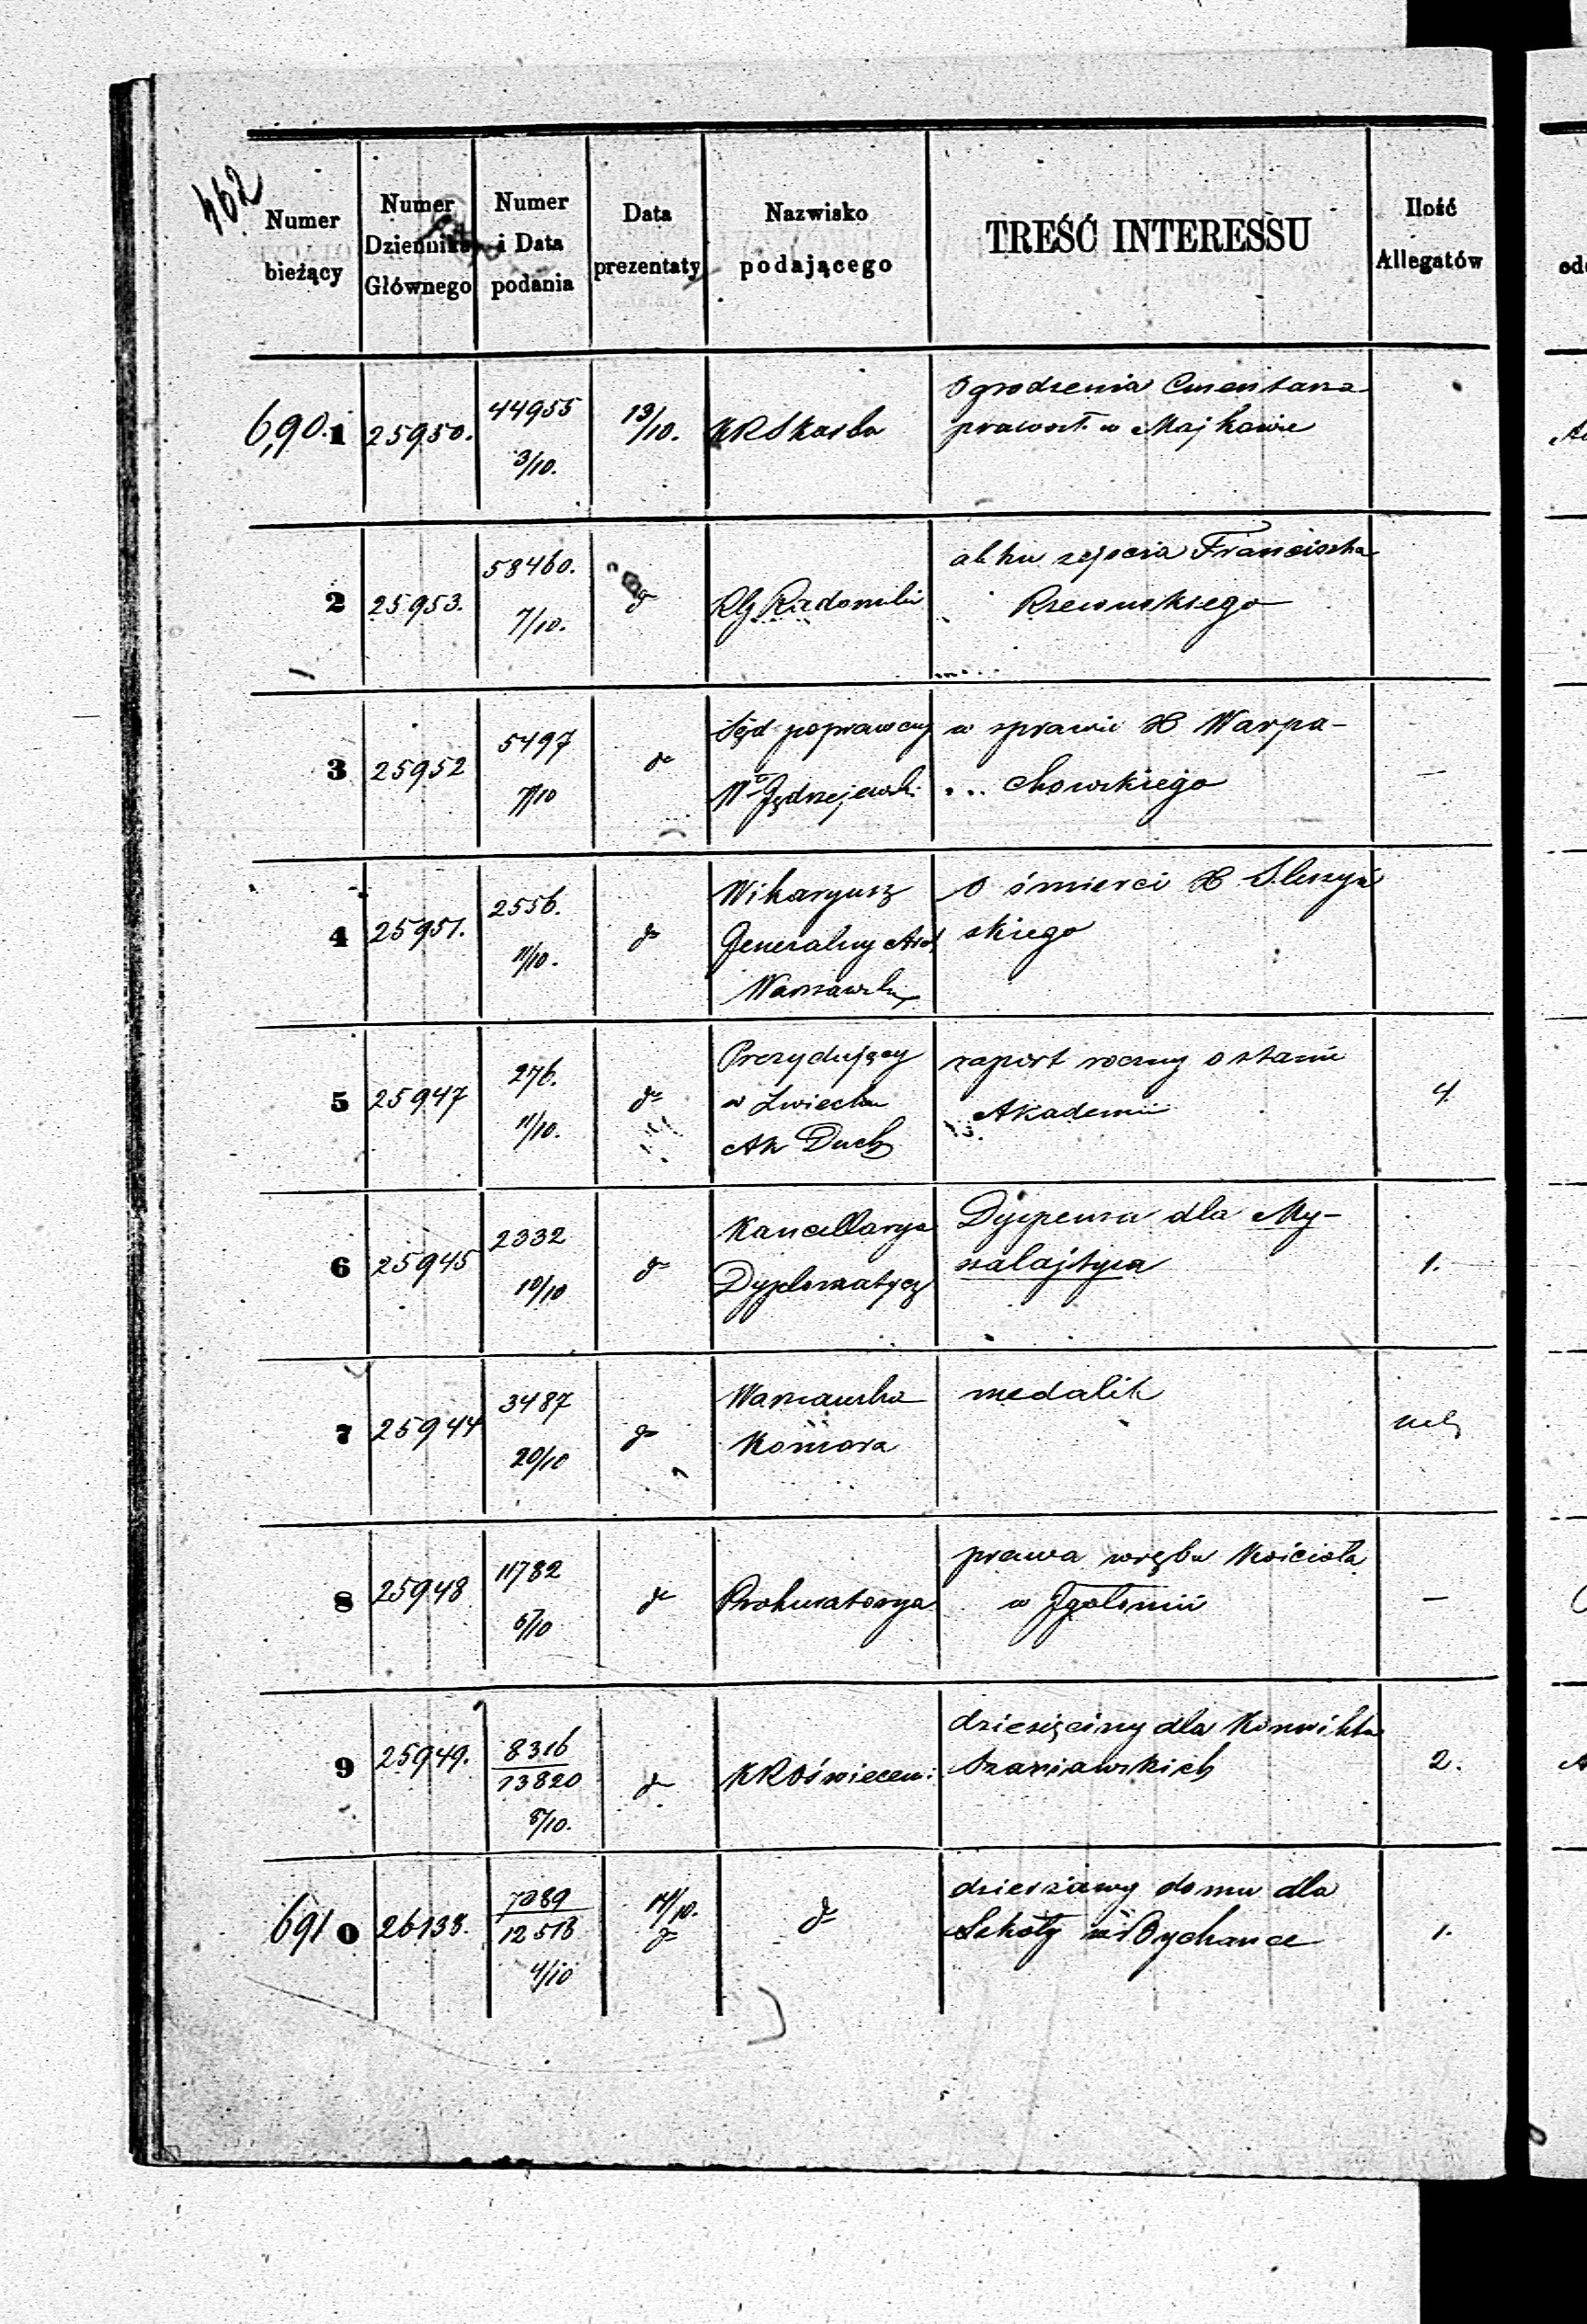 462
Numer bieżący
Numer Dziennika Głównego
Numer i Data podania
Data prezentaty
Nazwisko podającego
TREŚĆ INTERESSU
Ilość Allegatów
690.1 25950. 44955 3/10. 13/10. KRSkarbu
ogrodzenia Cmentarza
prawosł. w Majkowie
2 25953. 58460. 7/10. do RG Radomski
aktu zejścia Franciszka
Rzewuskiego
3 25952 5497 7/10 do
Sąd poprawczy
Wu Jędrzejewski
w sprawie X Warpa-
chowskiego
4 25951. 2556. 11/10. do
Wikaryusz
Generalny Arch
Warszawski
o śmierci X Sleszyń
skiego
5 25947 276. 11/10. do
Prezydujący
w
Ak Duch
raport roczny o stanie
Akademii
4
6 25945 2332 10/10 do
Kancellarya
Dyplomatycz
Dyspensa dla My-
szalajtysa
1.
7 25944 3487 20/10 do
Warszawska
Komora
medalik
8 25948 11782 6/10 do Prokuratorya
prawa wrębu Kościoła
w Igołomii
—
9 25949. 8316 / 13820 8/10. do KROświeceni
dziesięciny dla Konwiktu
Szaniawskich
2.
6910 26138. 7089 / 12518 4/10 14/10. do do
dzierżawy domu dla
Szkoły w Bychawce
1.